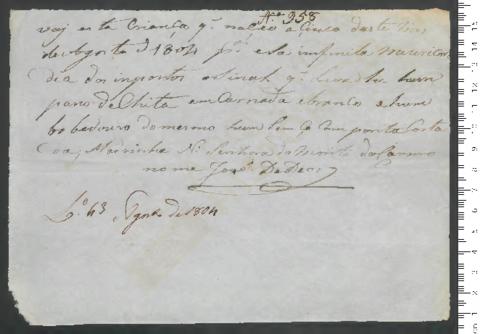 Nº 958
vaj esta Criança q. naceo a sinco deste mes
de Agosto d 1804 pª esa infinita Mizericor
dia dos inposivos o sinal q. leva he hum
pano de Chita emCarnada e branco e hum
babadouro do mesmo hum lenço Com ponta Corta
da, Madrinha N. Senhora do Monte do Carmo
nome José De Deos
Lº 63 Agosto de 1804